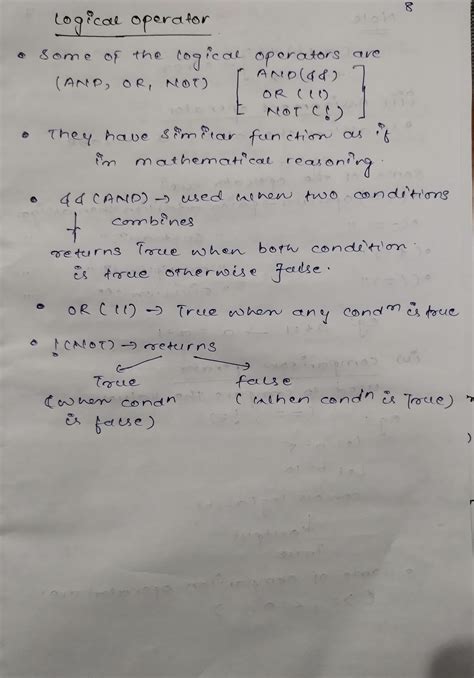 8
Logical operator
• Some of the logical operators are
(AND, OR, NOT) [ AND(&&)
OR (||)
NOT (!) ]
• They have similar function as if
in mathematical reasoning.
• && (AND) → used when two conditions
combines
↓
returns True when both condition
is true otherwise false.
• OR (||) → True when any condn is true
• !(NOT) → returns
True false
(when condn (when condn is True)
is false)